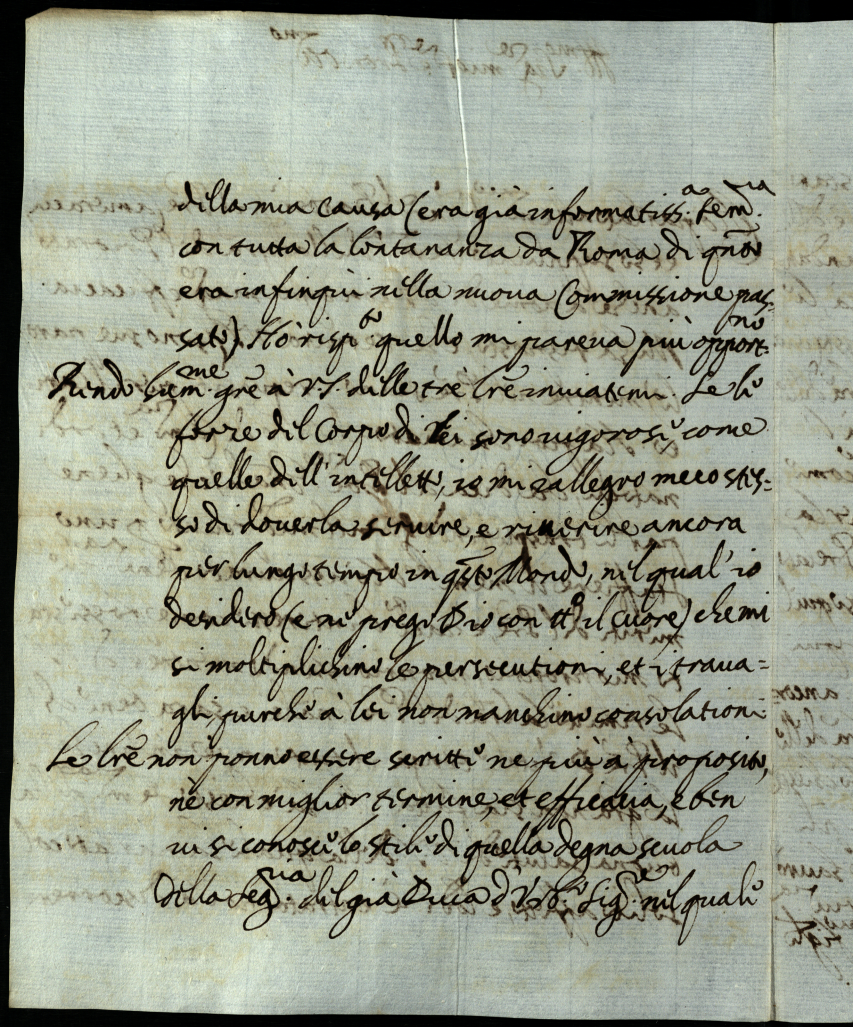 della mia causa (era già informatiss.ª
con tutta la lontananza da Roma di qnto
era infinqui nella nuova Commissione pas=
sato) Hò rispto quello mi pareva più opport.no
Rendo hum.me grẽ à V.S. delle trè lrẽ inviatemi. Se le
forze del Corpo di lei sono vigorose, come
quelle dell'intelletto, io mi rallegro meco stes=
so di doverla servire, e riverire ancora
per lungo tempo in qsto Mondo, nel qual'io
desidero (e ne prego Dio con tto il cuore) che mi
si moltiplichino le persecutioni, et i trava=
gli purche à lei non manchino consolationi
Le lrẽ non ponno essere scritte ne più à proposito,
nè con miglior termine, et efficacia, e ben
vi si conosce lo stile di quella degna scuola
della Seg.ria del già Duca d'Urb.o Sig.re nel quale